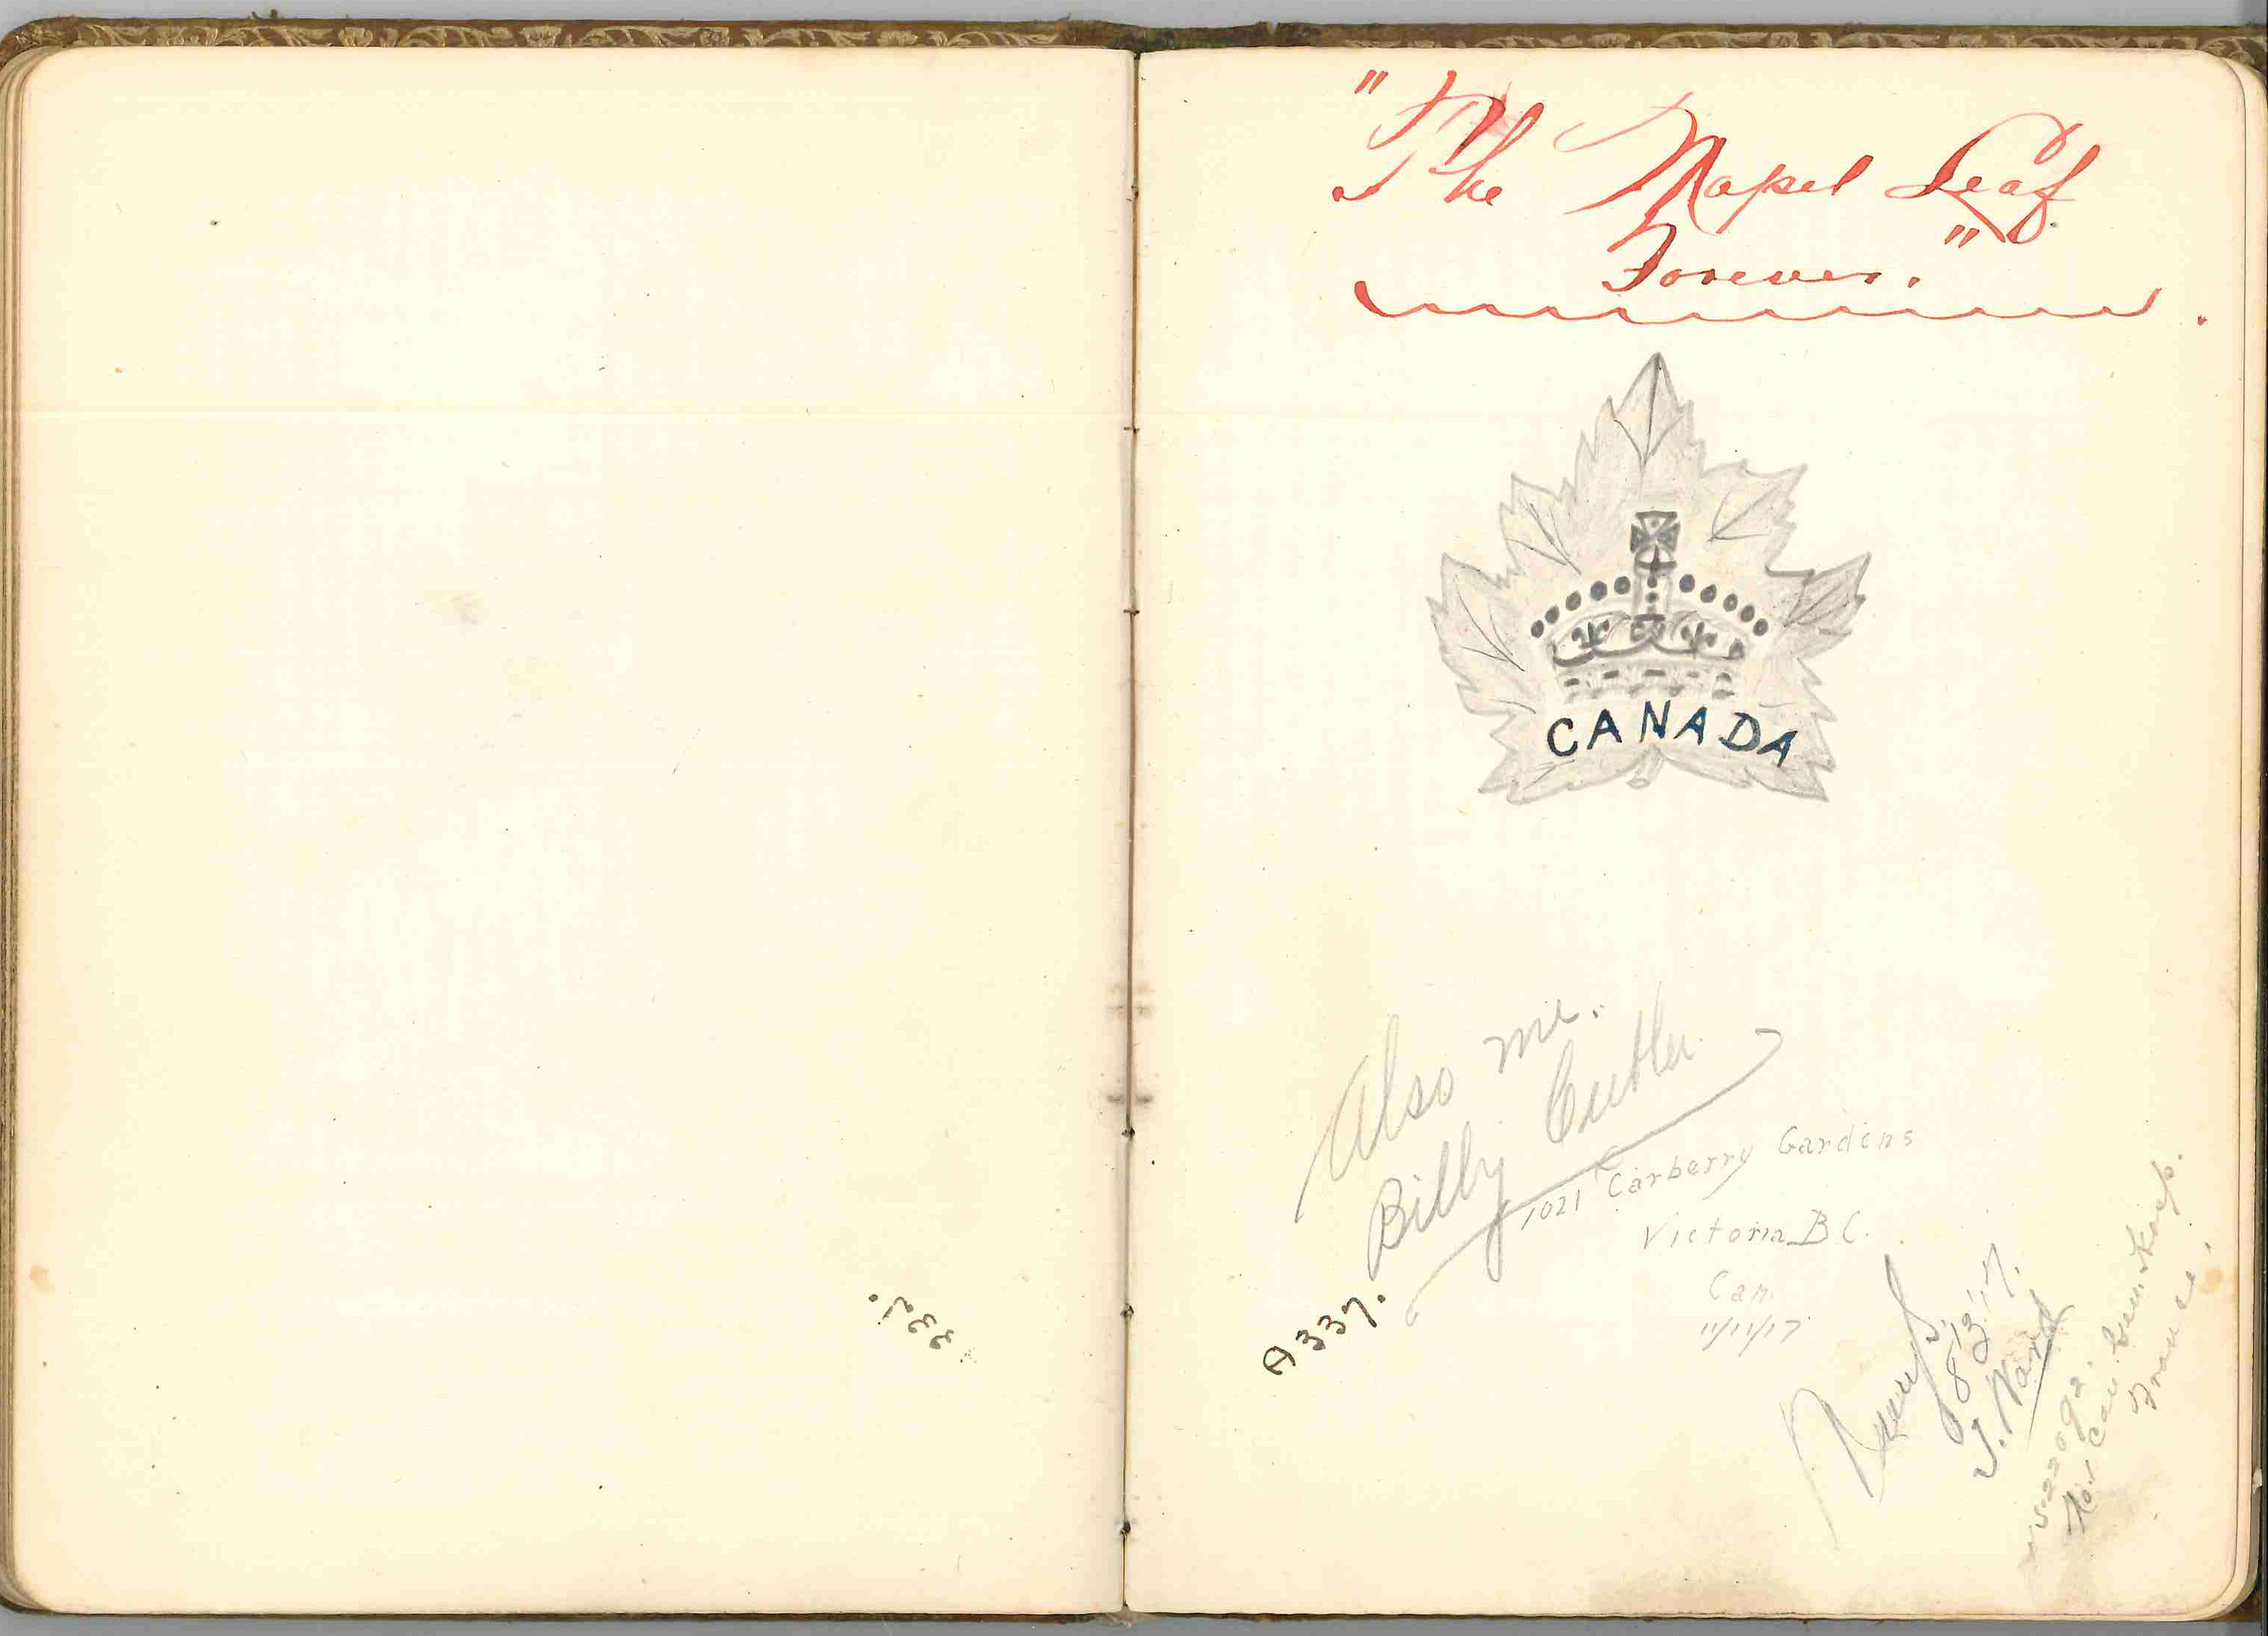 "The Mapel Leaf
Forever."
CANADA
Also me.
Billy Cutler.
1021 Carberry Gardens
Victoria B C.
Can.
11/11/17
A 337.
8/3/17.
J. Ward
522092.
No. 1 Can. Gen. Hosp.
France.